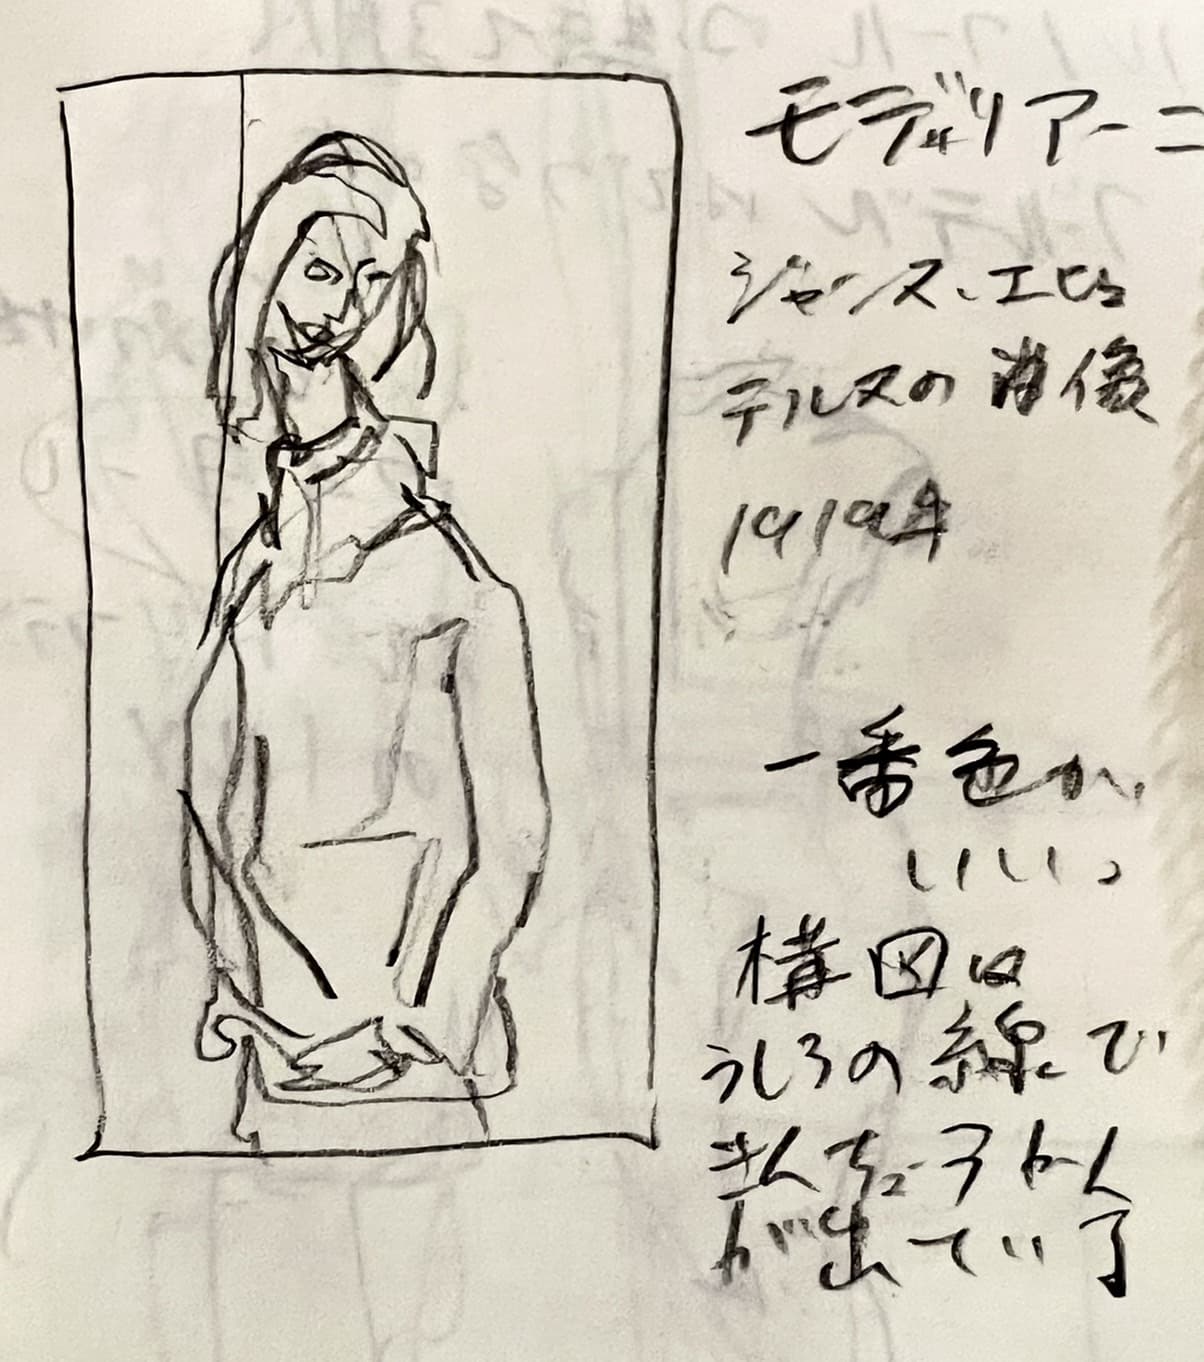 モディリアーニ
ジャンヌ、エビュ
テルヌの肖像
1919年
一番色が、
いい。
構図は
うしろの線で
きんちょうかん
が出ている